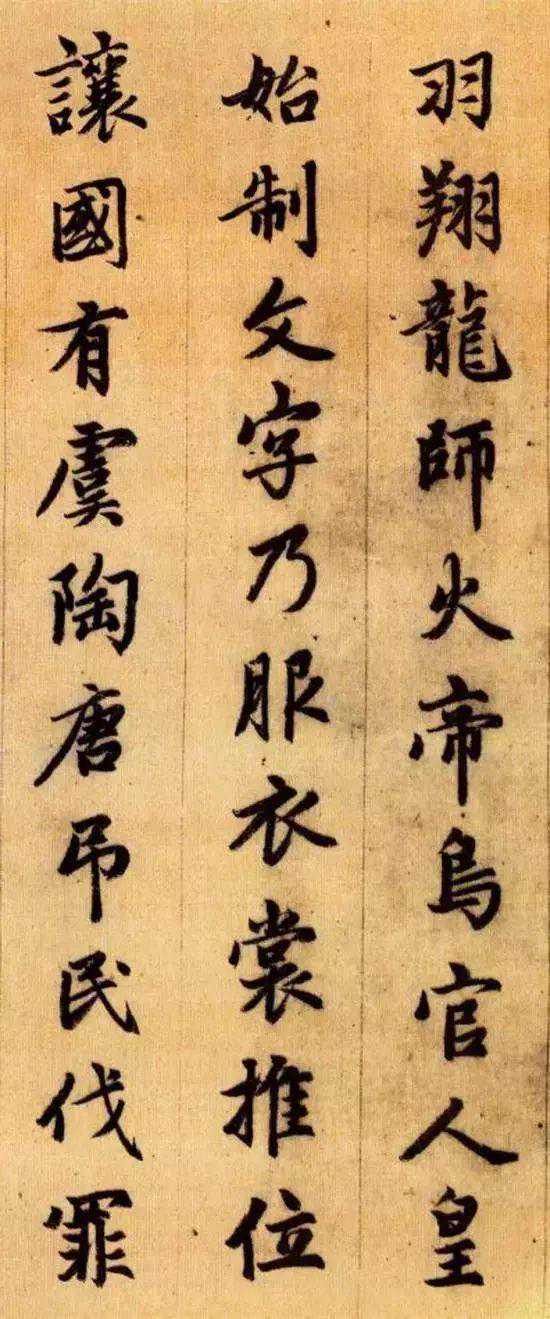 羽翔龍師火帝鳥官人皇
始制文字乃服衣裳推位
讓國有虞陶唐吊民伐罪